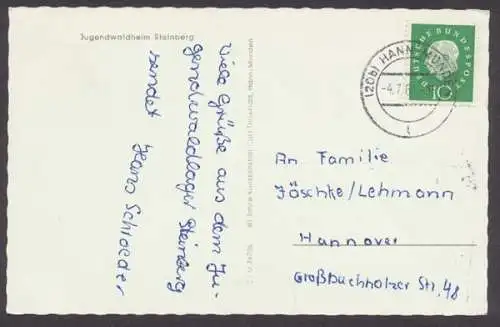 Jugendwaldheim Steinberg
Viele Grüße aus dem Ju-
gendwaldlager Steinberg
sendet Hans Schroeder
DEUTSCHE BUNDESPOST
10
(20b) HANN
-4.7.6
t
An Familie
Jäschke/Lehmann
Hannover
Großbuchholzer Str. 48